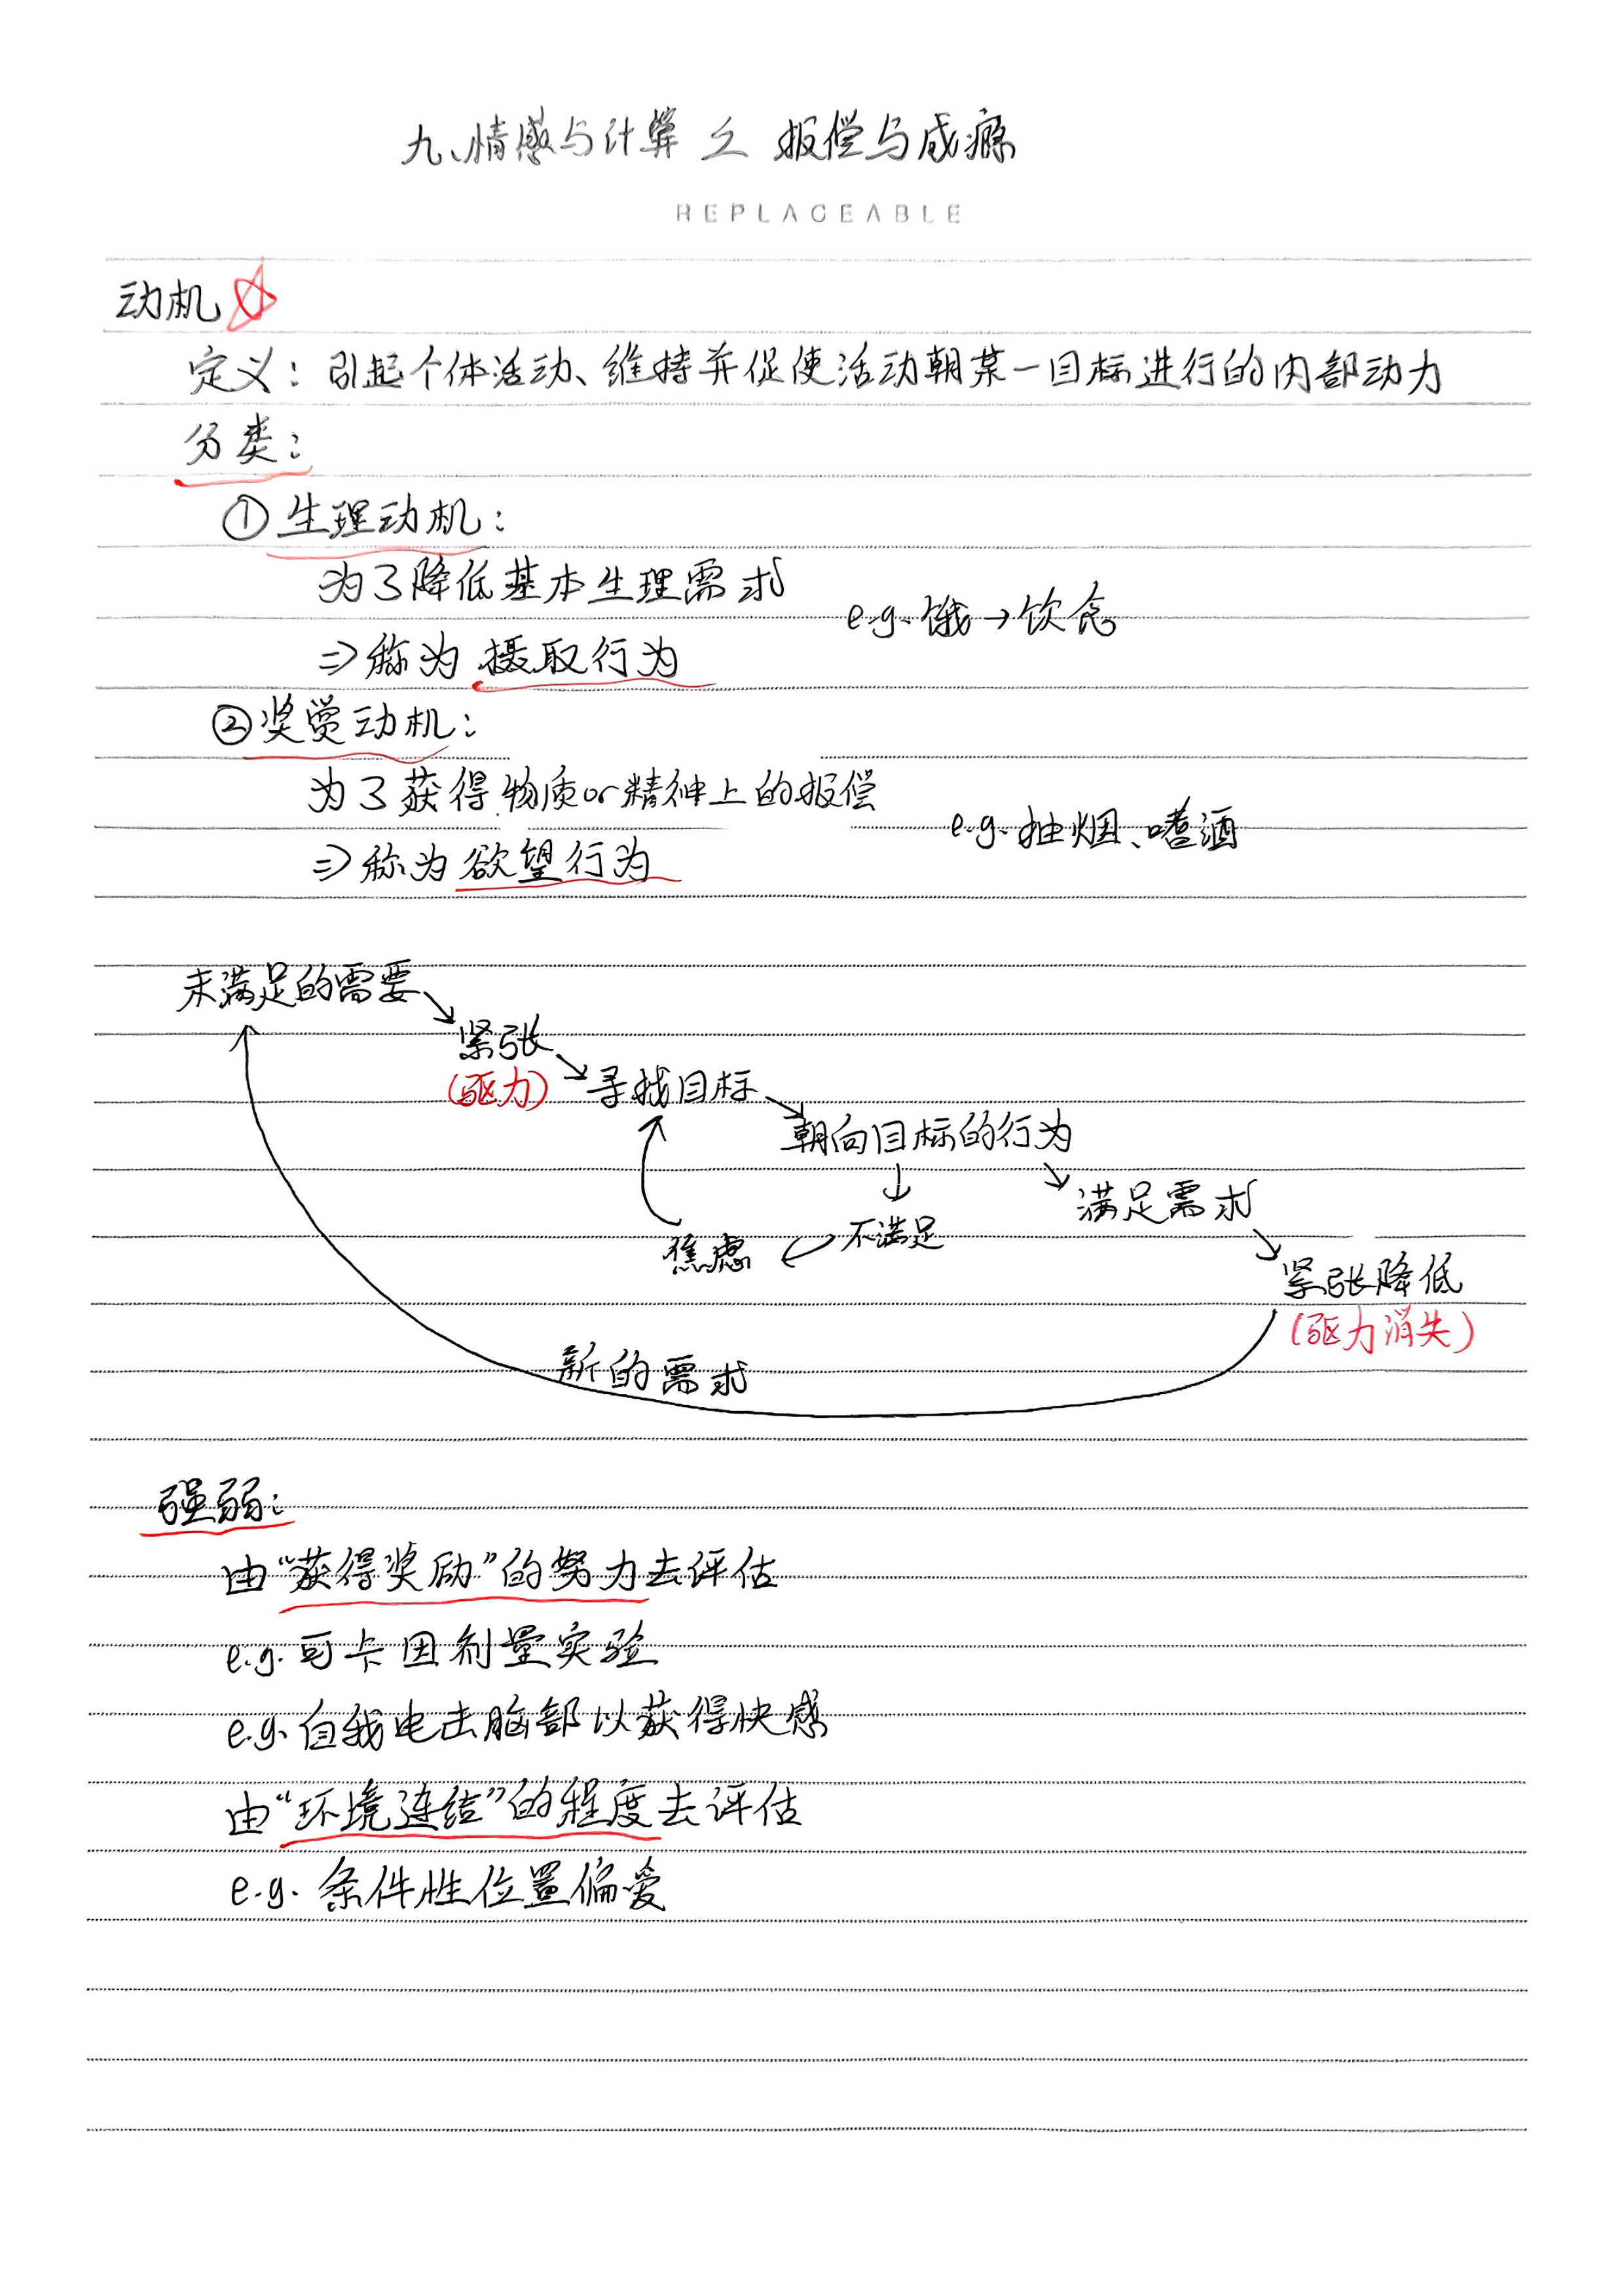 九、情感与计算 之 报偿与成瘾
REPLACEABLE
动机
定义：引起个体活动、维持并促使活动朝某一目标进行的内部动力
分类：
①生理动机：
为了降低基本生理需求
e.g.饿→饮食
⇒称为摄取行为
②奖赏动机：
为了获得物质or精神上的报偿
e.g.抽烟、嗜酒
⇒称为欲望行为
未满足的需要
紧张
(驱力)
寻找目标
朝向目标的行为
满足需求
焦虑
不满足
紧张降低
(驱力消失)
新的需求
强弱：
由“获得奖励”的努力去评估
e.g.可卡因剂量实验
e.g.自我电击脑部以获得快感
由“环境连结”的程度去评估
e.g.条件性位置偏爱